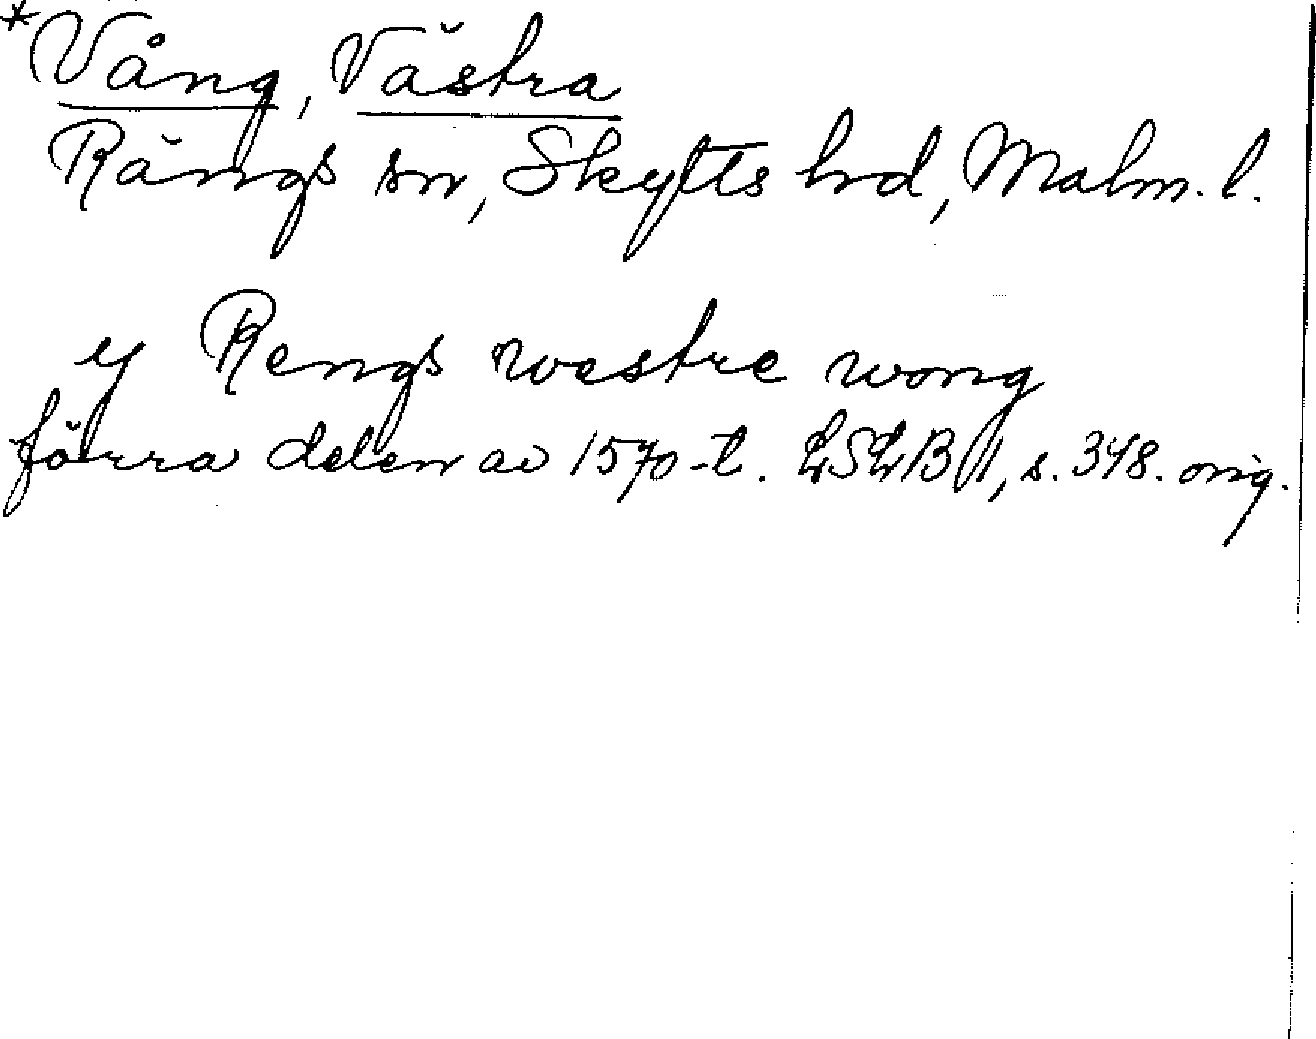 *Vång, Västra
Rängs sn, Skytts hd, Malm. l.
y Rengs westre wong
förra delen av 1570-t. LSLB 1, s. 348. orig.